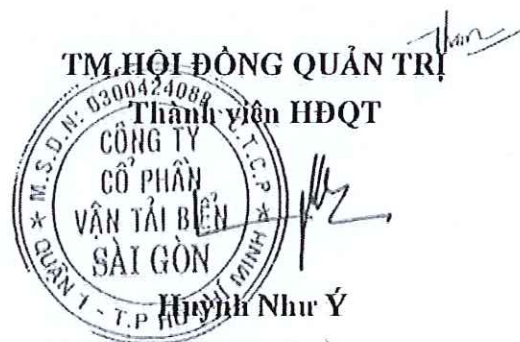 TM.HỘI ĐỒNG QUẢN TRỊ
Thành viên HĐQT
M.S.D.N: 0300424088 C.T.C.P
CÔNG TY
CỔ PHẦN
VẬN TẢI BIỂN
SÀI GÒN
QUẬN 1 - T.P HỒ CHÍ MINH
Huỳnh Như Ý